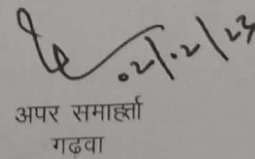 02/.2/23
अपर समाहर्त्ता
गढ़वा